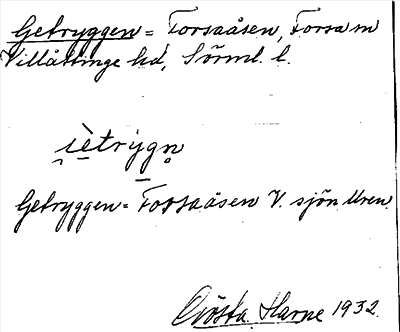 Getryggen = Forsaåsen, Forsa m
Villåttinge hd, Sörml. l.
i̯ètrygn̥
Getryggen = Forsaåsen V. sjön Uren.
Gösta Harne 1932.